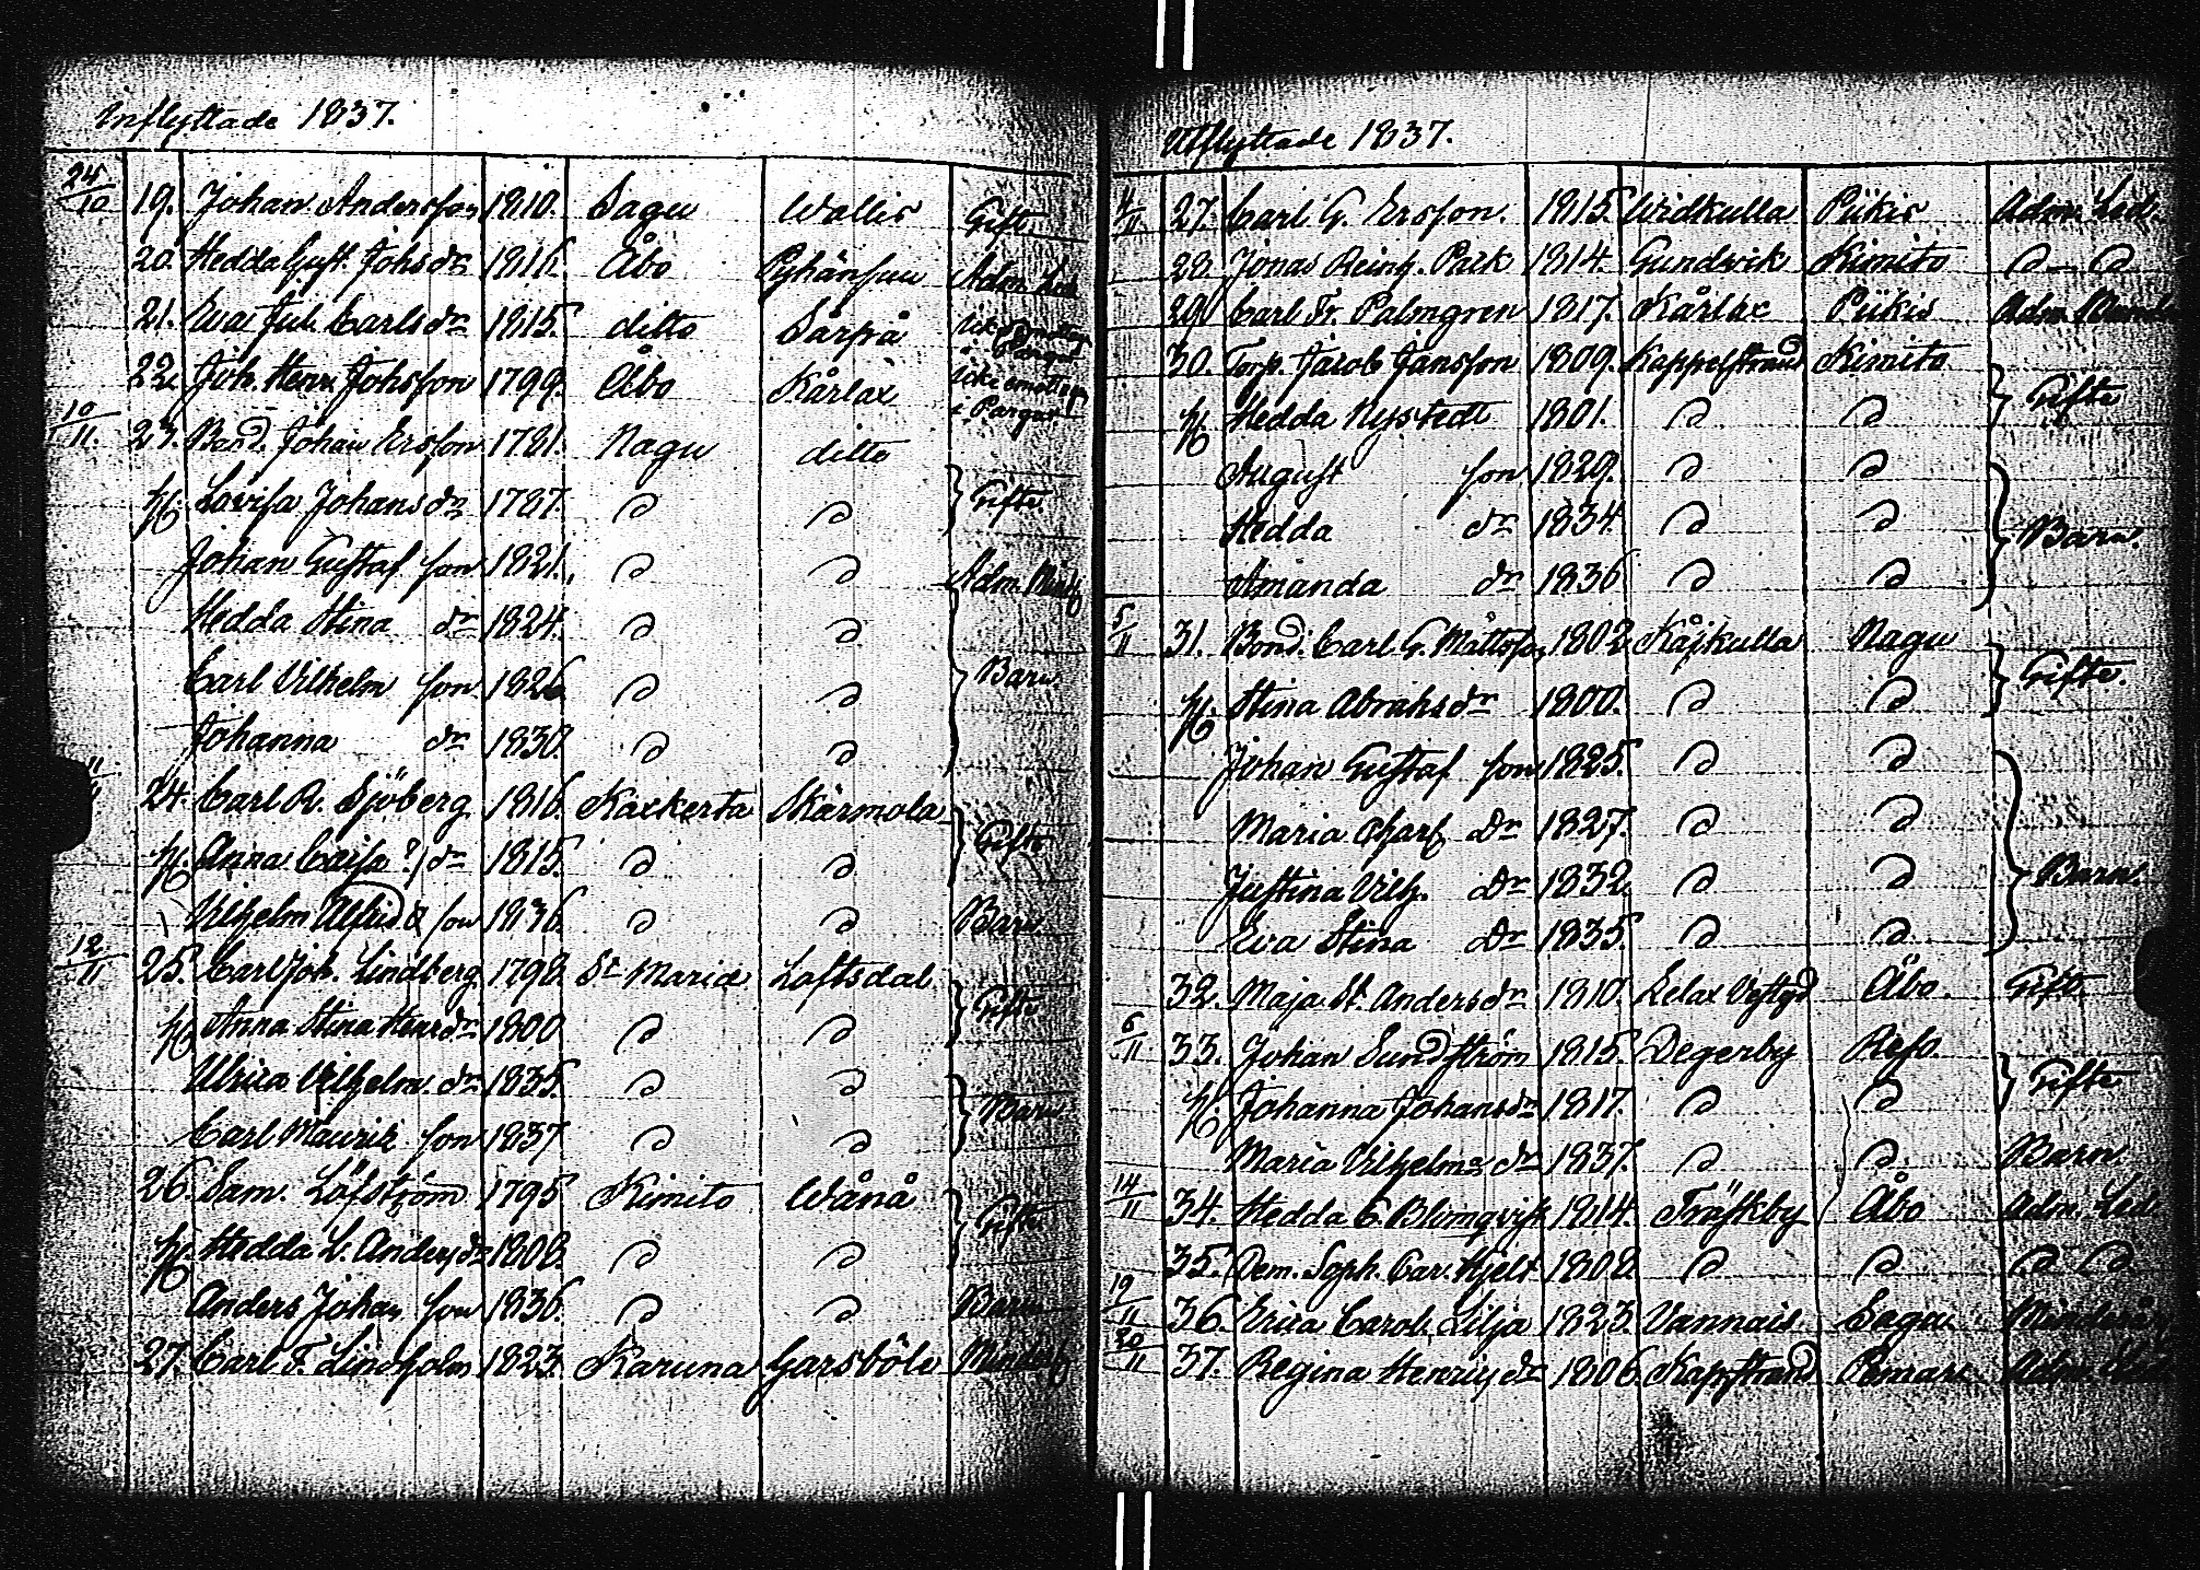 Inflyttade 1837.
24/10 19. Johan Andersson 1810. Sagu Wallis Gift.
20. Hedda Gust. Johs dr 1816. Åbo Pyhänsuu Adm. Led.
21. Eva Jul. Carls dr 1815. ditto Sorpå
22. Joh. Henr. Johsson 1799. Åbo Kårlax Icke emottagen i Pargas
10/11. 23. Bond. Johan Ersson 1781. Nagu ditto
h. Lovisa Johans dr 1787. d d Gifte.
Johan Gustaf son 1821. d d Adm.
Hedda Stina dr 1824. d d
Carl Vilhelm son 1826 d d Barn
Johanna dr 1830. d d
24. Carl R. Sjöberg 1816. Kaxkerta Skärmola
h. Anna Caisa ?) dr 1815. d d Gifte
Vilhelm Alfrid son 1836. d d Barn
12/11 25. Carl Joh. Lindberg 1798. St Mariæ Loftsdal
h. Anna Stina Henrs dr 1800 d d Gifte
Ulrica Vilhelm. dr 1835. d d
Carl Maurik son 1837 d d Barn
26. Sam. Löfström 1795 Kimito Wånå
h. Hedda L. Anders dr 1808. d d Gifte
Anders Johan son 1836. d d Barn
27. Carl F. Lindholm 1823. Karuna Garsböle
Utflyttade 1837.
4/11. 27. Carl G. Ersson. 1815. Widkulla Pikis Adm. Led.
28. Jonas Reinh. 1814. Gundvik Kimito d — d
29. Carl Fr. Palmgren 1817. Kårlax Pikis Adm.
30. Torp. Jacob Jansson 1809. Kappelstrand Kimito
h. Hedda Nystedt 1801. d d Gifte
August son 1829. d d
Hedda dr 1834. d d Barn.
Amanda dr 1836 d d
5/11 31. Bond. Carl G. Mattsson 1802. Kåjkulla Nagu
h. Stina Abrahs dr 1800. d d Gifte.
Johan Gustaf son 1825. d d
Maria Charl. Dr 1827. d d
Justina Vilh. Dr 1832. d d Barn.
Eva Stina Dr 1835. d d
32. Maja St. Anders dr 1810. Lelax Åbo. Gift
6/11 33. Johan Sundström 1815. Degerby Reso.
h. Johanna Johans dr 1817. d d Gifte
Maria Vilhelma dr 1837. d d Barn.
14/11 34. Hedda C. Blomqvist 1814. Träskby Åbo Adm. Led.
35. Dem. Soph. Car. Hjelt 1808. d d d d
19/11 36. Erica Carol. Lilja 1823. Vannais Sagu
20/11 37. Regina Henrics dr 1806. Kappstrand Pemar Adm.